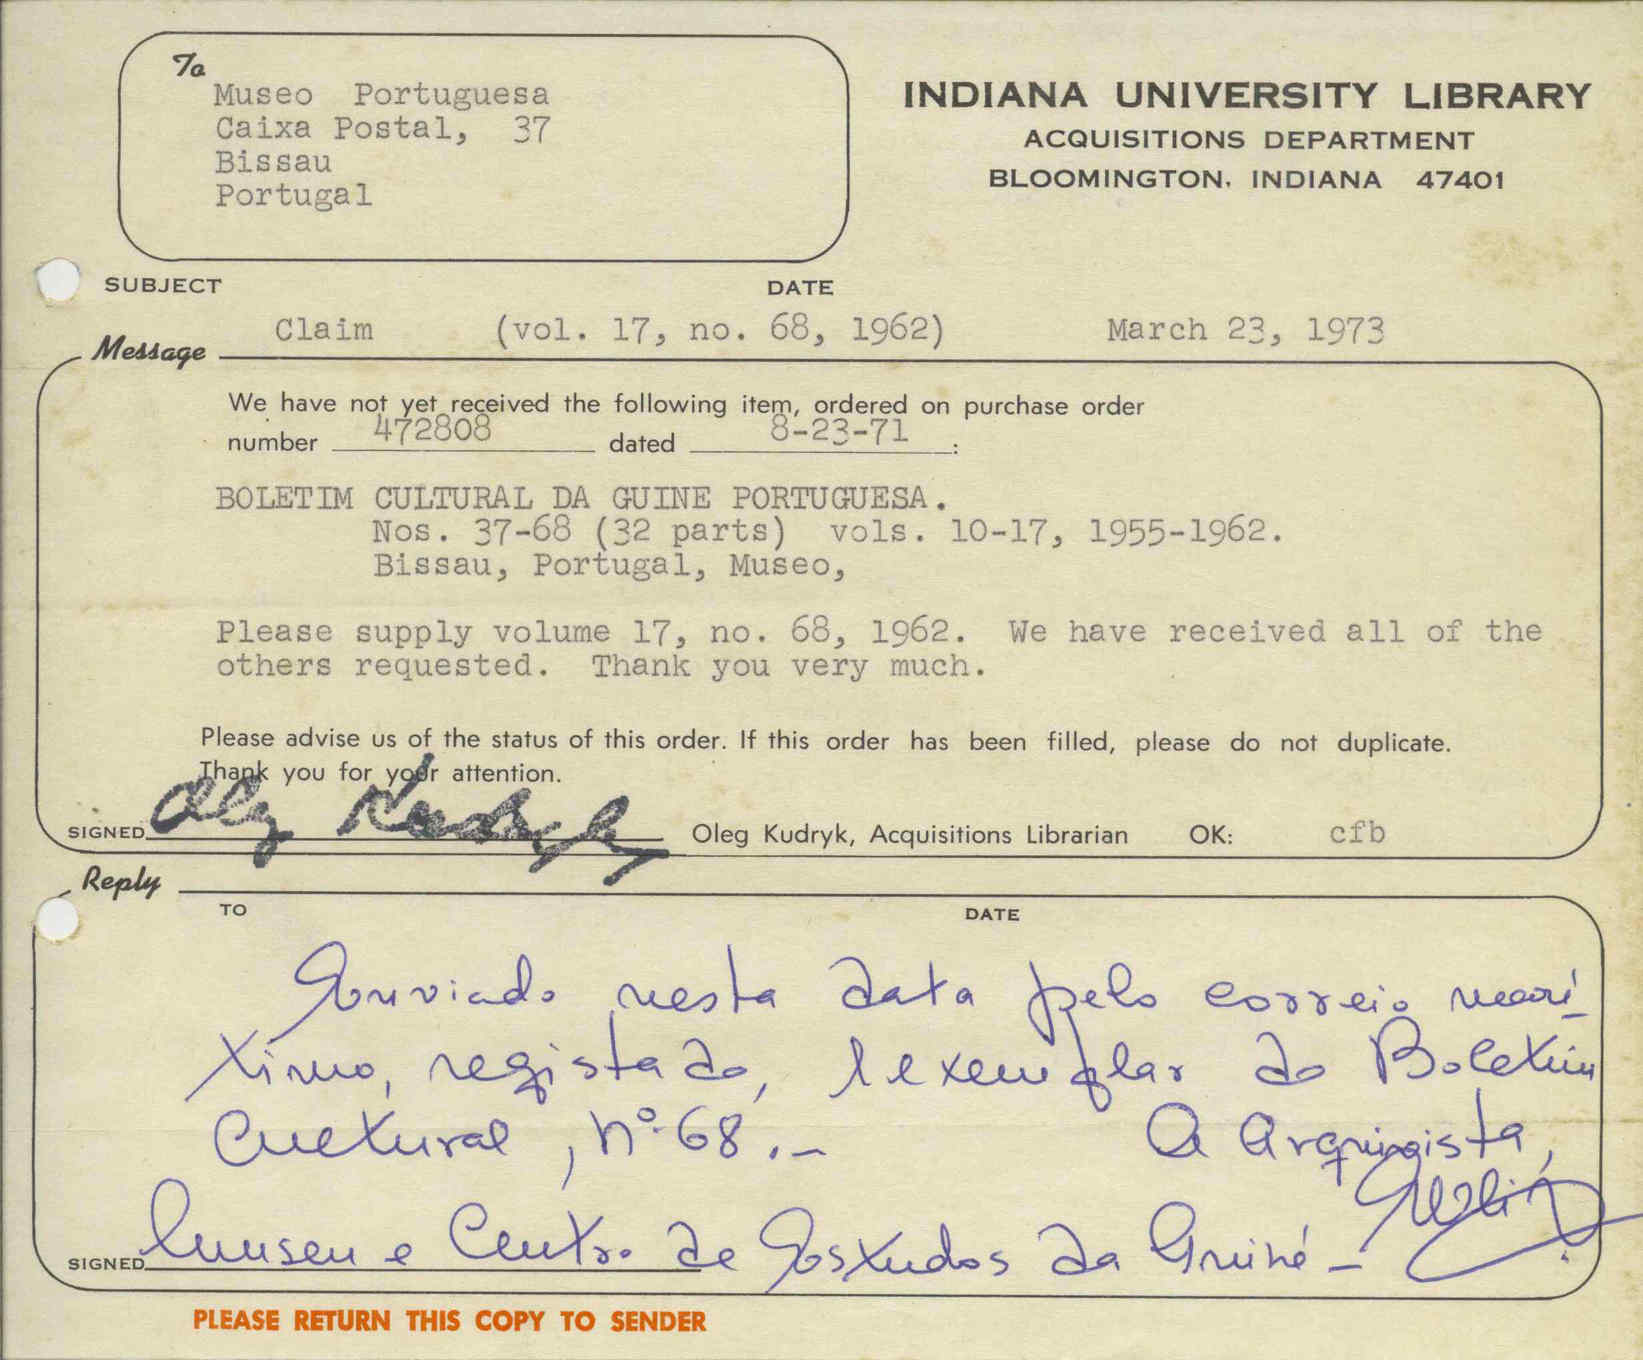 To
Museo Portuguesa
Caixa Postal, 37
Bissau
Portugal
INDIANA UNIVERSITY LIBRARY
ACQUISITIONS DEPARTMENT
BLOOMINGTON, INDIANA 47401
SUBJECT DATE
Claim (vol. 17, no. 68, 1962) March 23, 1973
Message
We have not yet received the following item, ordered on purchase order
number 472808 dated 8-23-71 :
BOLETIM CULTURAL DA GUINE PORTUGUESA.
Nos. 37-68 (32 parts) vols. 10-17, 1955-1962.
Bissau, Portugal, Museo,
Please supply volume 17, no. 68, 1962. We have received all of the
others requested. Thank you very much.
Please advise us of the status of this order. If this order has been filled, please do not duplicate.
Thank you for your attention.
SIGNED Oleg Kudryk Oleg Kudryk, Acquisitions Librarian OK: cfb
Reply
TO DATE
Enviado nesta data pelo correio marí-
timo, registado, 1 exemplar do Boletim
Cultural, nº 68.-
A Arquivista,
SIGNED Museu e Centro de Estudos da Guiné -
PLEASE RETURN THIS COPY TO SENDER